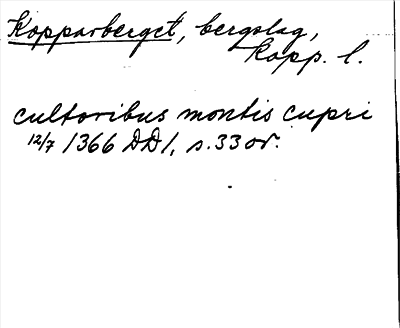 Kopparberget, bergslag,
Kopp. l.
cultoribus montis cupri
12/7 1366 DD1, s. 33 or.